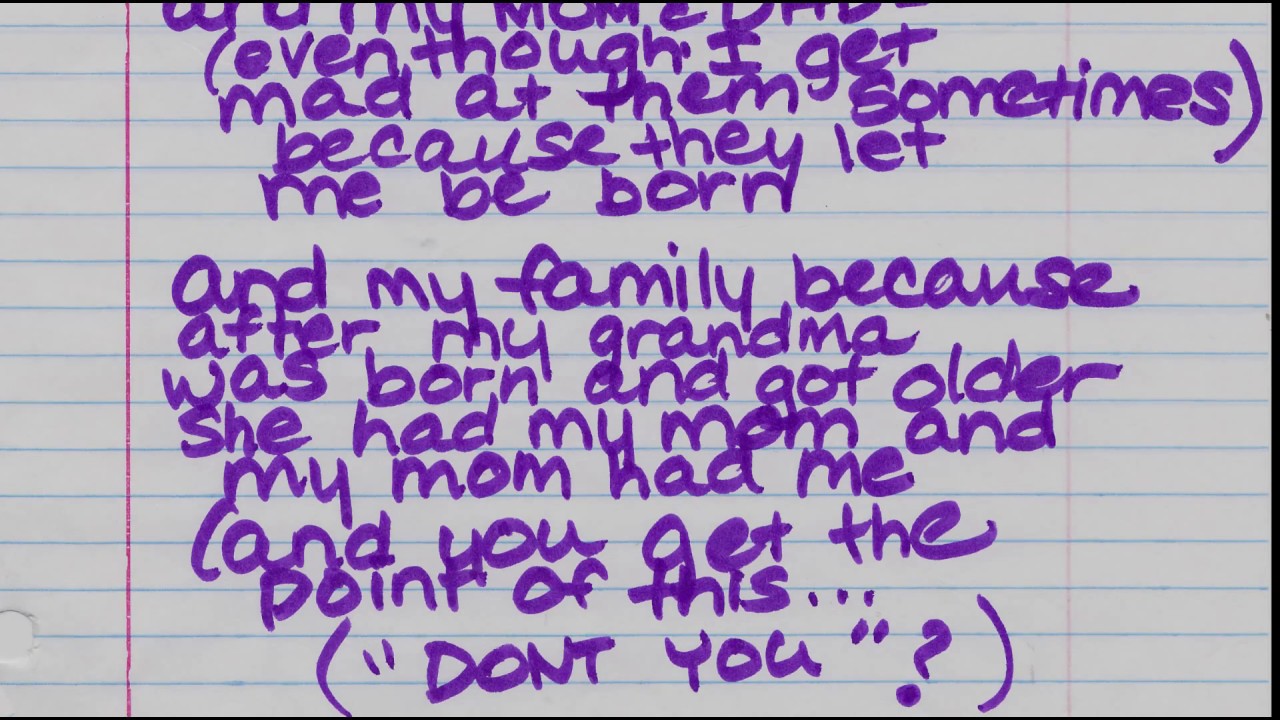 and my MOM & DAD-
(even though I get
mad at them sometimes)
because they let
me be born
and my family because
after my grandma
was born and got older
she had my mom and
my mom had me
(and you get the
point of this...
("DONT YOU"?)